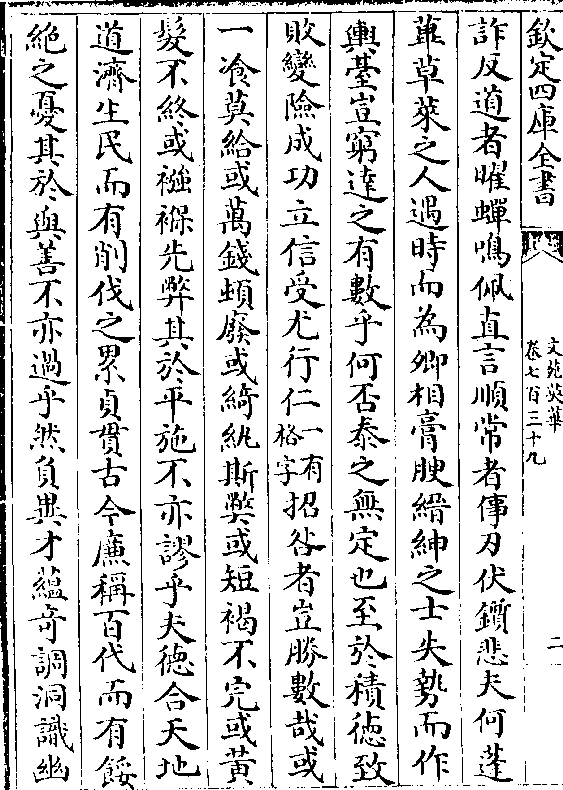 欽定四庫全書
文苑英華
卷七百三十九
二
詐反道者曜蟬鳴佩直言順常者倳刃伏鑕悲夫何蓬
茥草萊之人遇時而為卿相膏腴縉紳之士失勢而作
輿臺豈窮達之有數乎何否泰之無定也至於積徳致
敗變險成功立信受尤行仁一有格字招咎者豈勝數哉或
一飡莫給或萬錢頓廢或綺紈斯獘或短褐不完或黄
髮不終或襁褓先弊其於平施不亦謬乎夫徳合天地
道濟生民而有削伐之累貞貫古今㢘稱百代而有餒
絶之憂其於與善不亦過乎然負異才蘊竒調洞識幽